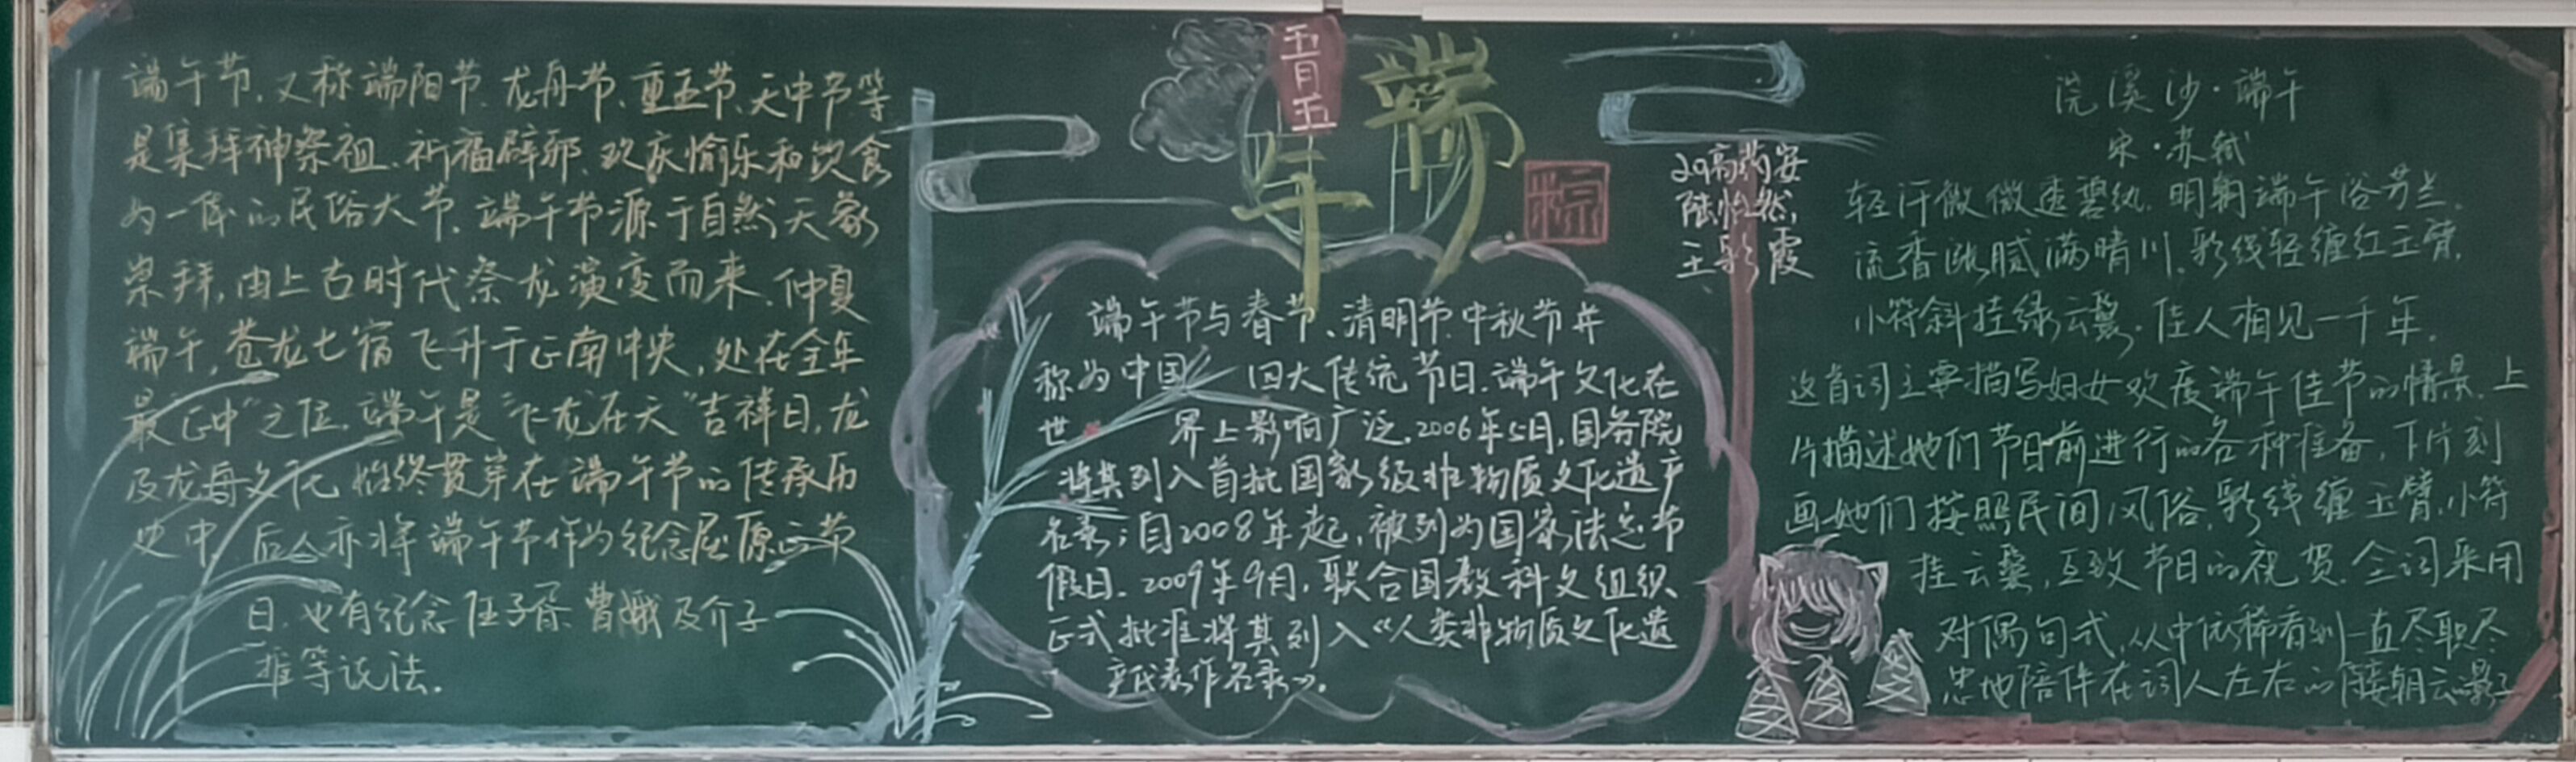 端午节、又称端阳节、龙舟节、重五节、天中节等
是集拜神祭祖、祈福辟邪、欢庆愉乐和饮食
为一体的民俗大节。端午节源于自然天象
崇拜,由上古时代祭龙演变而来。仲夏
端午,苍龙七宿飞升于正南中央,处在全年
最“正中”之位。端午是“飞龙在天”吉祥日,龙
及龙舟文化始终贯穿在端午节的传承历
史中。后人亦将端午节作为纪念屈原的节
日、也有纪念伍子胥、曹娥及介子
推等说法。
五月五
端午
粽
端午节与春节、清明节、中秋节并
称为中国四大传统节日。端午文化在
世界上影响广泛。2006年5月,国务院
将其列入首批国家级非物质文化遗产
名录;自2008年起,被列为国家法定节
假日。2009年9月,联合国教科文组织
正式批准将其列入《人类非物质文化遗
产代表作名录》。
高药安
陆怡然,
王彩霞
浣溪沙·端午
宋·苏轼
轻汗微微透碧纨,明朝端午浴芳兰。
流香涨腻满晴川。彩线轻缠红玉臂,
小符斜挂绿云鬟。佳人相见一千年。
这首词主要描写妇女欢度端午佳节的情景。上
片描述她们节日前进行的各种准备,下片刻
画她们按照民间风俗,彩线缠玉臂,小符
挂云鬟,互致节日的祝贺。全词采用
对偶句式,从中依稀看到一直尽职尽
忠地陪伴在词人左右的侍妾朝云的影子